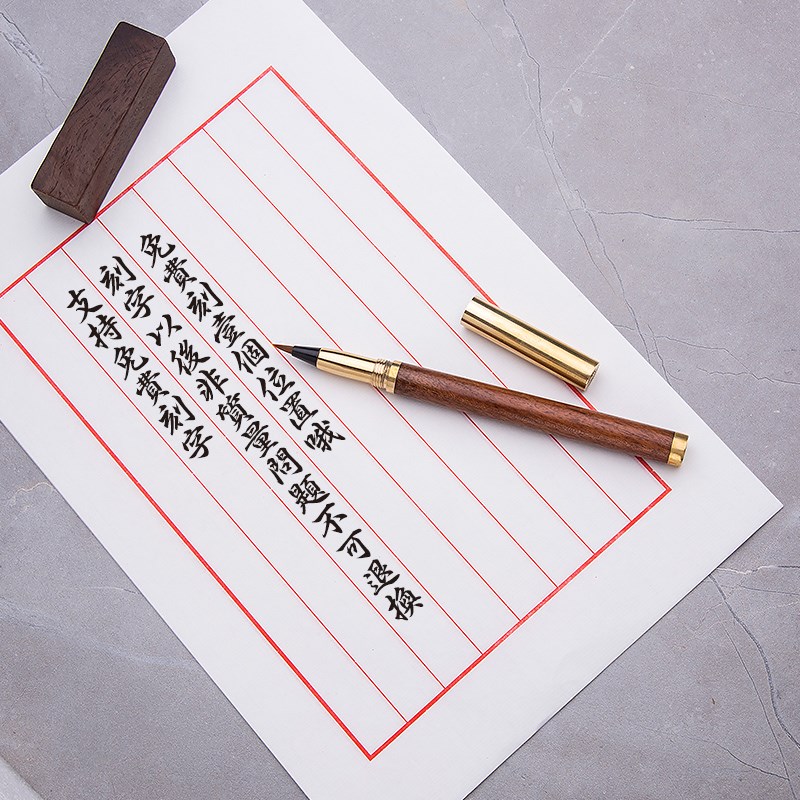 免費刻壹個位置哦
刻字以後非質量問題不可退換
支持免費刻字